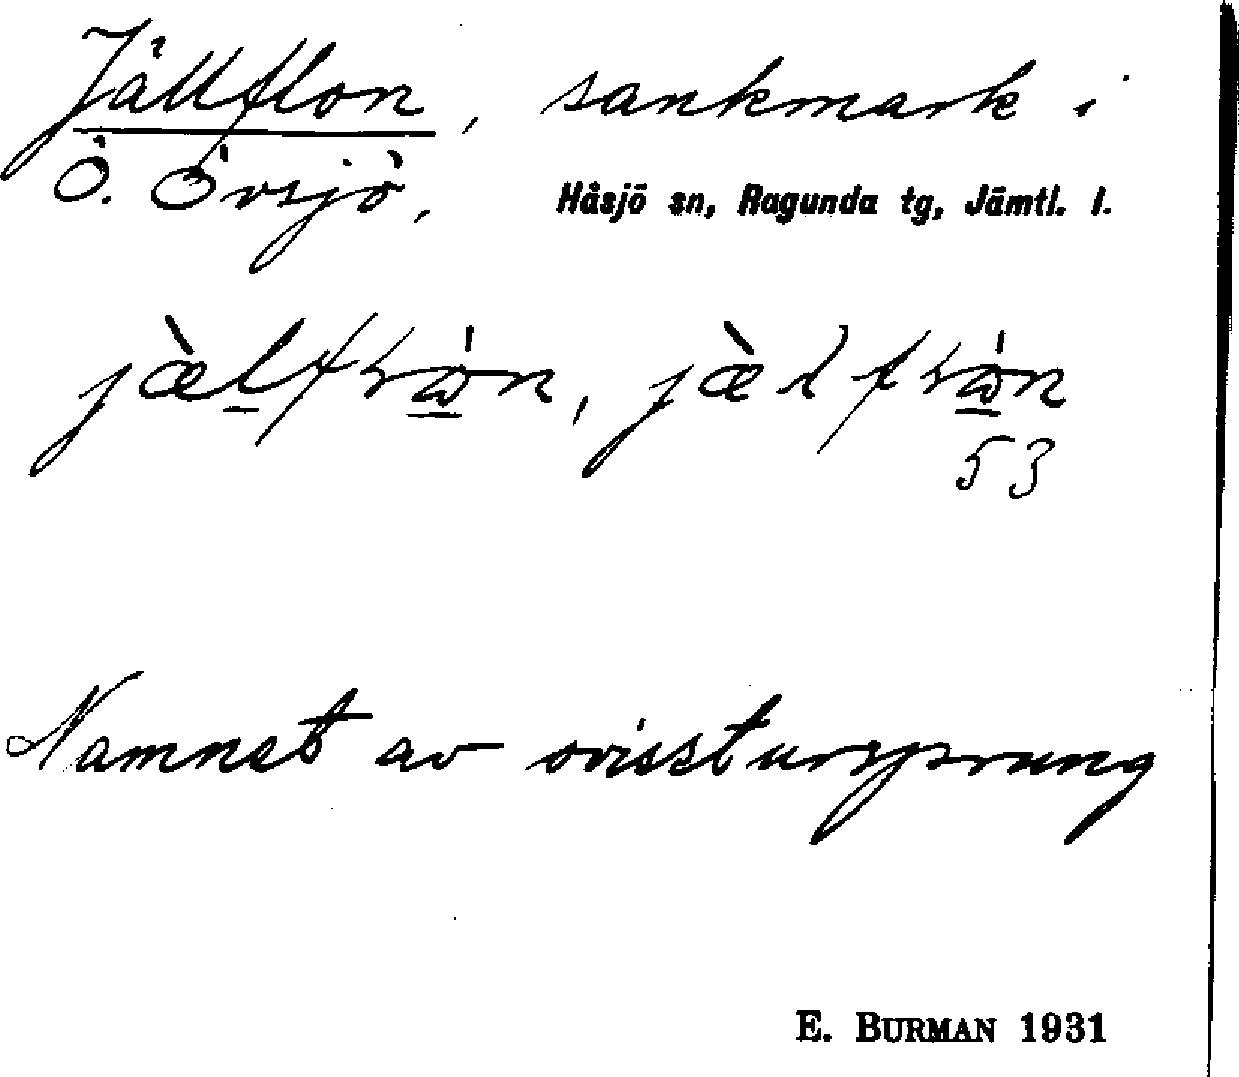 Jällflon, sankmark i
Ö. Övsjö, Håsjö sn, Ragunda tg, Jämtl. l.
53
Namnet av ovisst ursprung
E. BURMAN 1931